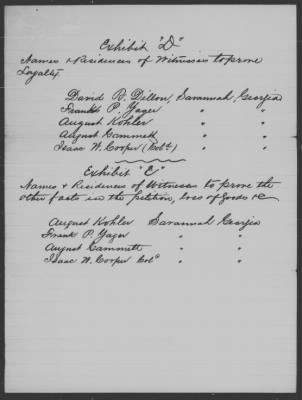 Exhibit "D"
Names & Residences of Witnesses to prove
Loyalty.
David R. Dillon, Savannah, Georgia
Frank P. Yager " "
August Kohler " "
August Gammett " "
Isaac W. Cooper (Cold) " "
Exhibit "E"
Names & Residences of Witnesses to prove the
other facts in the petition, loss of Goods &c
August Kohler Savannah Georgia
Frank P. Yager " "
August Gammett " "
Isaac W. Cooper Cold " "